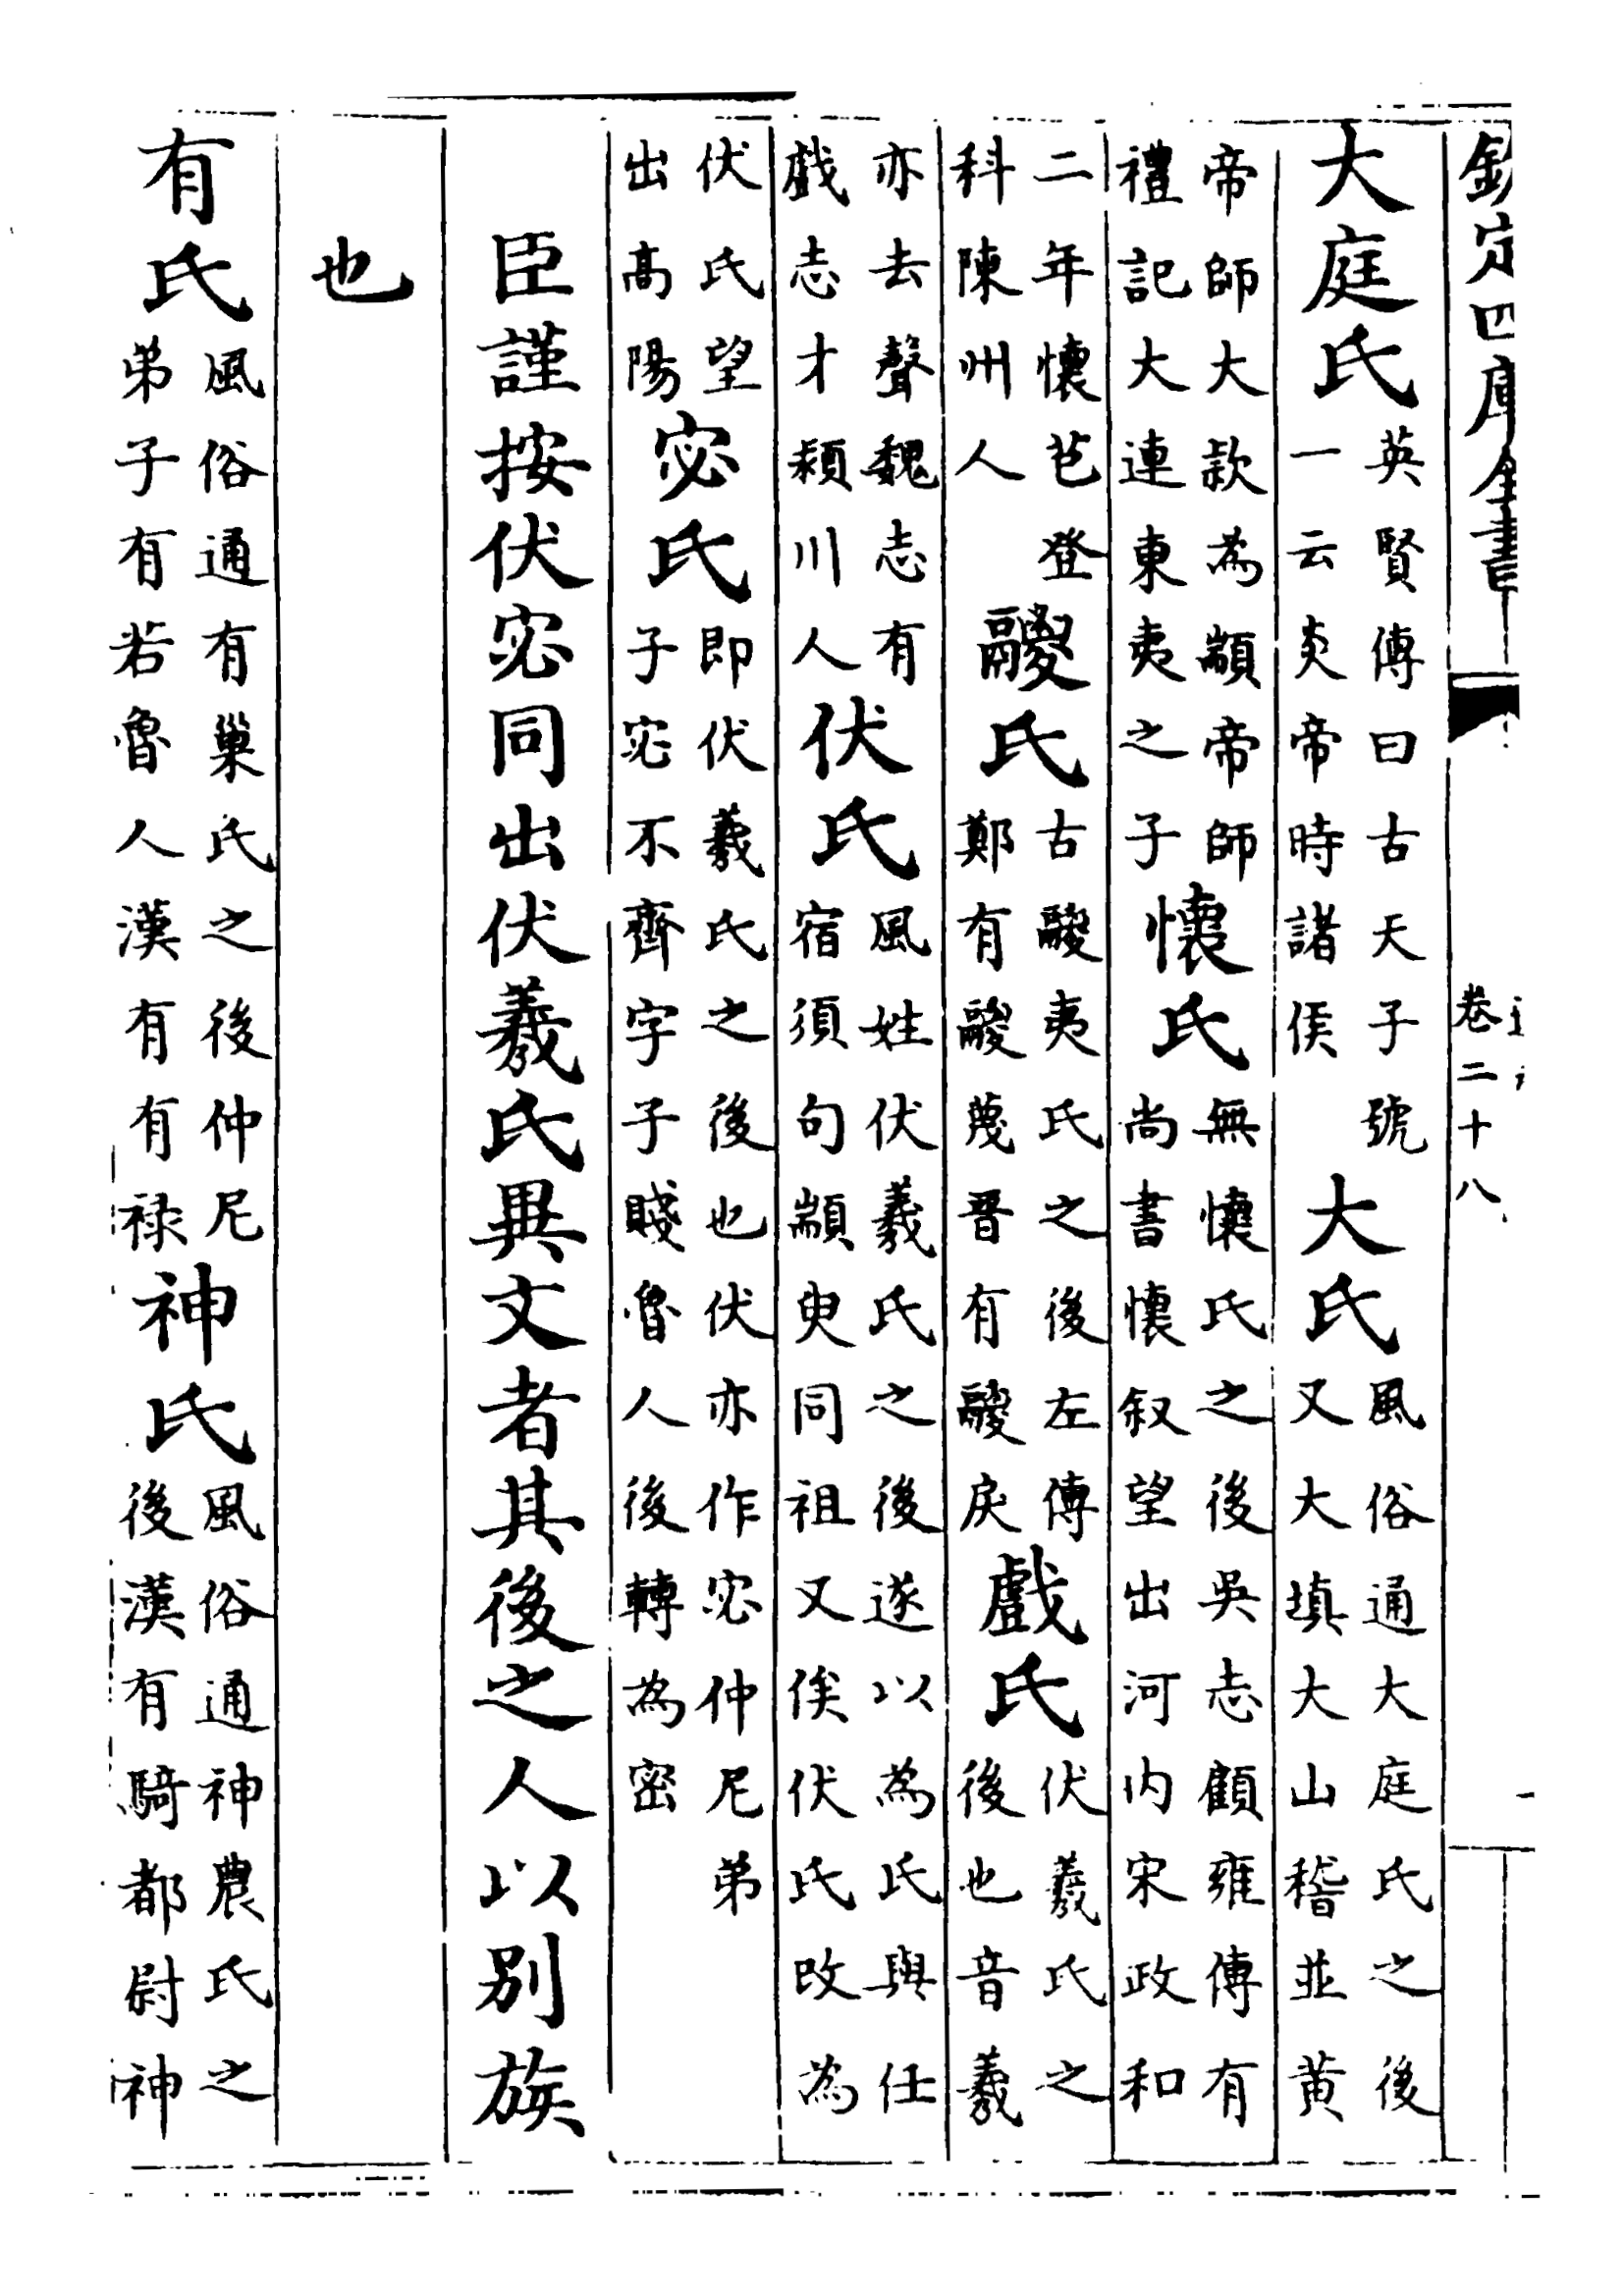 欽定四庫全書
卷二十八
一
大庭氏英賢傳曰古天子號一云炎帝時諸侯大氏風俗通大庭氏之後又大填大山稽並黃
帝師大款為顓帝師禮記大連東夷之子懷氏無懷氏之後吳志顧雍傳有尚書懷叙望出河内宋政和
二年懷芑登科陳州人鬷氏古鬷夷氏之後左傳鄭有鬷蔑晉有鬷戾戲氏伏羲氏之後也音羲
亦去聲魏志有戲志才潁川人伏氏風姓伏羲氏之後遂以為氏與任宿須句顓臾同祖又俟伏氏改為
伏氏望出高陽宓氏即伏羲氏之後也伏亦作宓仲尼弟子宓不齊字子賤魯人後轉為密
臣謹按伏宓同出伏羲氏異文者其後之人以別族
也
有氏風俗通有巢氏之後仲尼弟子有若魯人漢有有祿神氏風俗通神農氏之後漢有騎都尉神